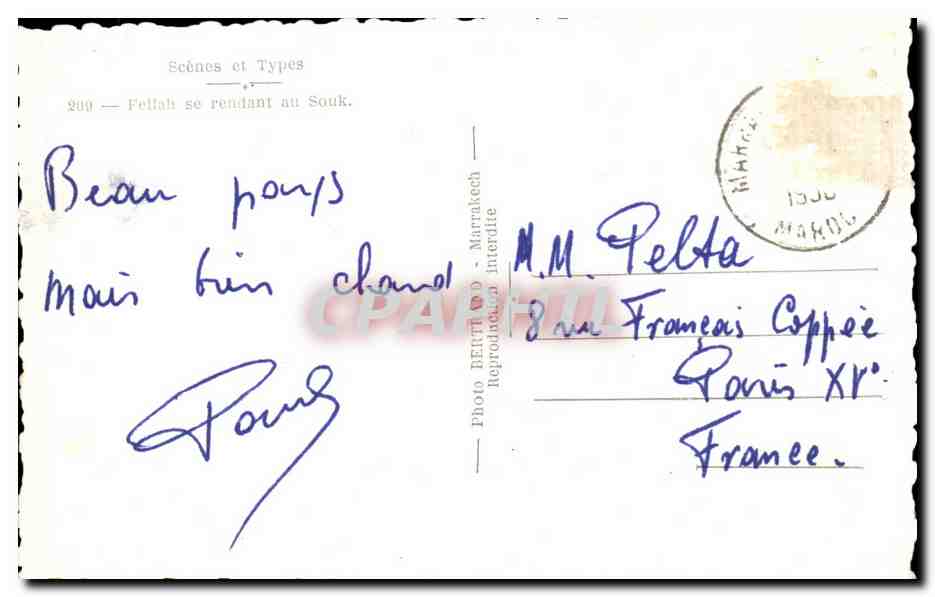 Scènes et Types
209 — Fellah se rendant au Souk.
Beau pays
mais bien chaud
Paul
Photo BERTRAND - Marrakech
Reproduction interdite
MAROC
M.M. Pelta
8 rue François Coppée
Paris XV°
France.
CPARHIL